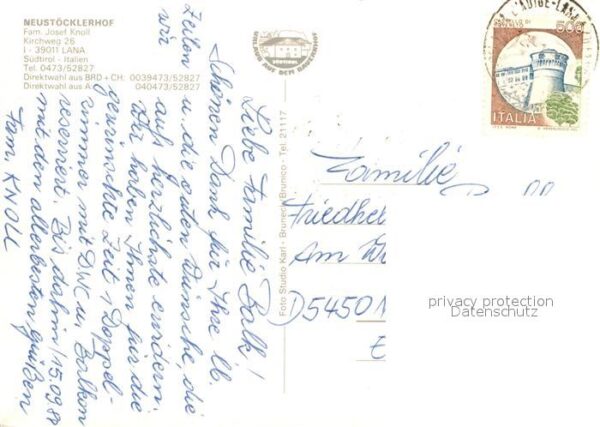 NEUSTÖCKLERHOF
Fam. Josef Knoll
Kirchweg 26
I - 39011 LANA
Südtirol - Italien
Tel. 0473/52827
Direktwahl aus BRD + CH: 0039473/52827
Direktwahl aus A: 040473/52827
URLAUB AUF DEM BAUERNHOF
SÜDTIROL
L'ADIGE-LANA
500
ITALIA
Liebe Familie Balk!
Schönen Dank für Ihre lb.
Zeilen u. die guten Wünsche, die
wir aufs herzlichste erwidern.
Wir haben Ihnen für die
gewünschte Zeit 1 Doppel-
zimmer mit DWC u. Balkon
reserviert. Bis dahin
mit den allerbesten Grüßen
Fam. KNOLL
15.09.8
Foto Studio Karl - Bruneck/Brunico - Tel. 21117
Familie
Friedhe
Am
D5450
privacy protection
Datenschutz